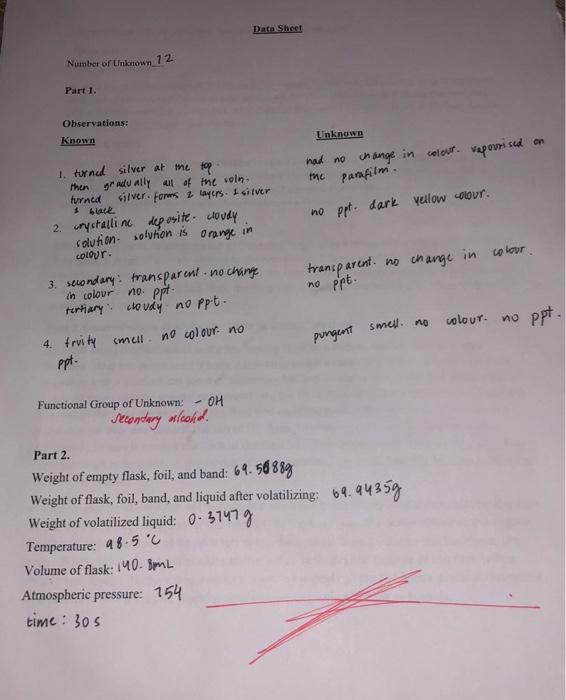 Data Sheet
Number of Unknown 12
Part 1.
Observations:
Known
Unknown
1. turned silver at the top.
then gradually all of the soln.
turned silver. forms 2 layers. 1 silver
& black
had no change in colour. vapourised on
the parafilm.
2. crystalline deposite. cloudy
solution. solution is orange in
colour.
no ppt. dark yellow colour.
3. secondary: transparent. no change
in colour. no. ppt.
tertiary: cloudy. no ppt.
transparent. no change in colour.
no ppt.
4. fruity smell. no colour. no
ppt.
pungent smell. no colour. no ppt.
Functional Group of Unknown: - OH
secondary alcohol.
Part 2.
Weight of empty flask, foil, and band: 69.5688g
Weight of flask, foil, band, and liquid after volatilizing: 69.9435g
Weight of volatilized liquid: 0.3747g
Temperature: 98.5°C
Volume of flask: 140.8mL
Atmospheric pressure: 754
time: 30s